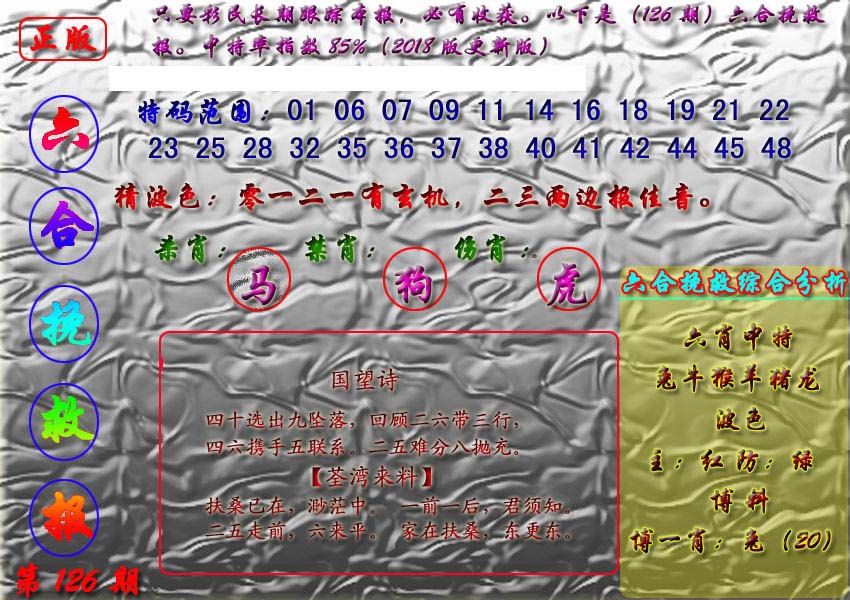 只要彩民长期跟踪本报，必有收获。以下是（126期）六合挽救
报。中特率指数85%（2018版更新版）
正版
六合挽救报
第126期
特码范围：01 06 07 09 11 14 16 18 19 21 22
23 25 28 32 35 36 37 38 40 41 42 44 45 48
猜波色：零一二一有玄机，二三两边报佳音。
杀肖： 禁肖： 伤肖：。
马 狗 虎
国望诗
四十选出九坠落，回顾二六带三行，
四六携手五联系。二五难分八抛充。
【荃湾来料】
扶桑已在，渺茫中。 一前一后，君须知。
二五走前，六来平。 家在扶桑，东更东。
六合挽救综合分析
六肖中特
兔牛猴羊猪龙
波色
主：红防：绿
博料
博一肖：兔（20）